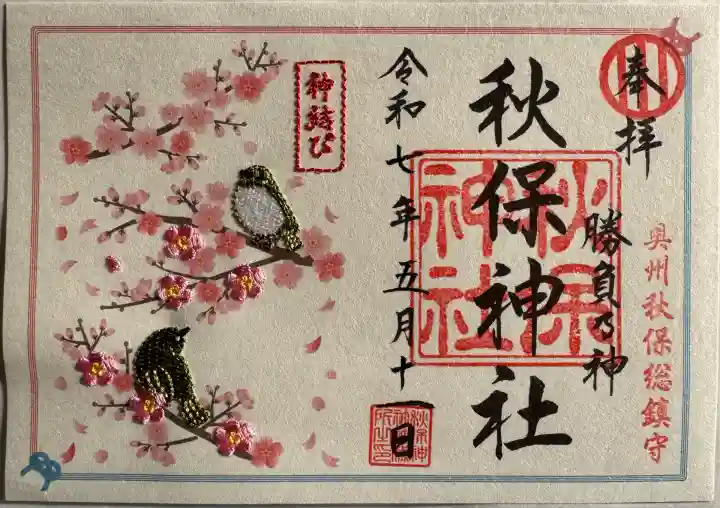 奉拝
奥州秋保総鎮守
勝負乃神
秋保神社
秋保神社
令和七年五月十一日
神結び